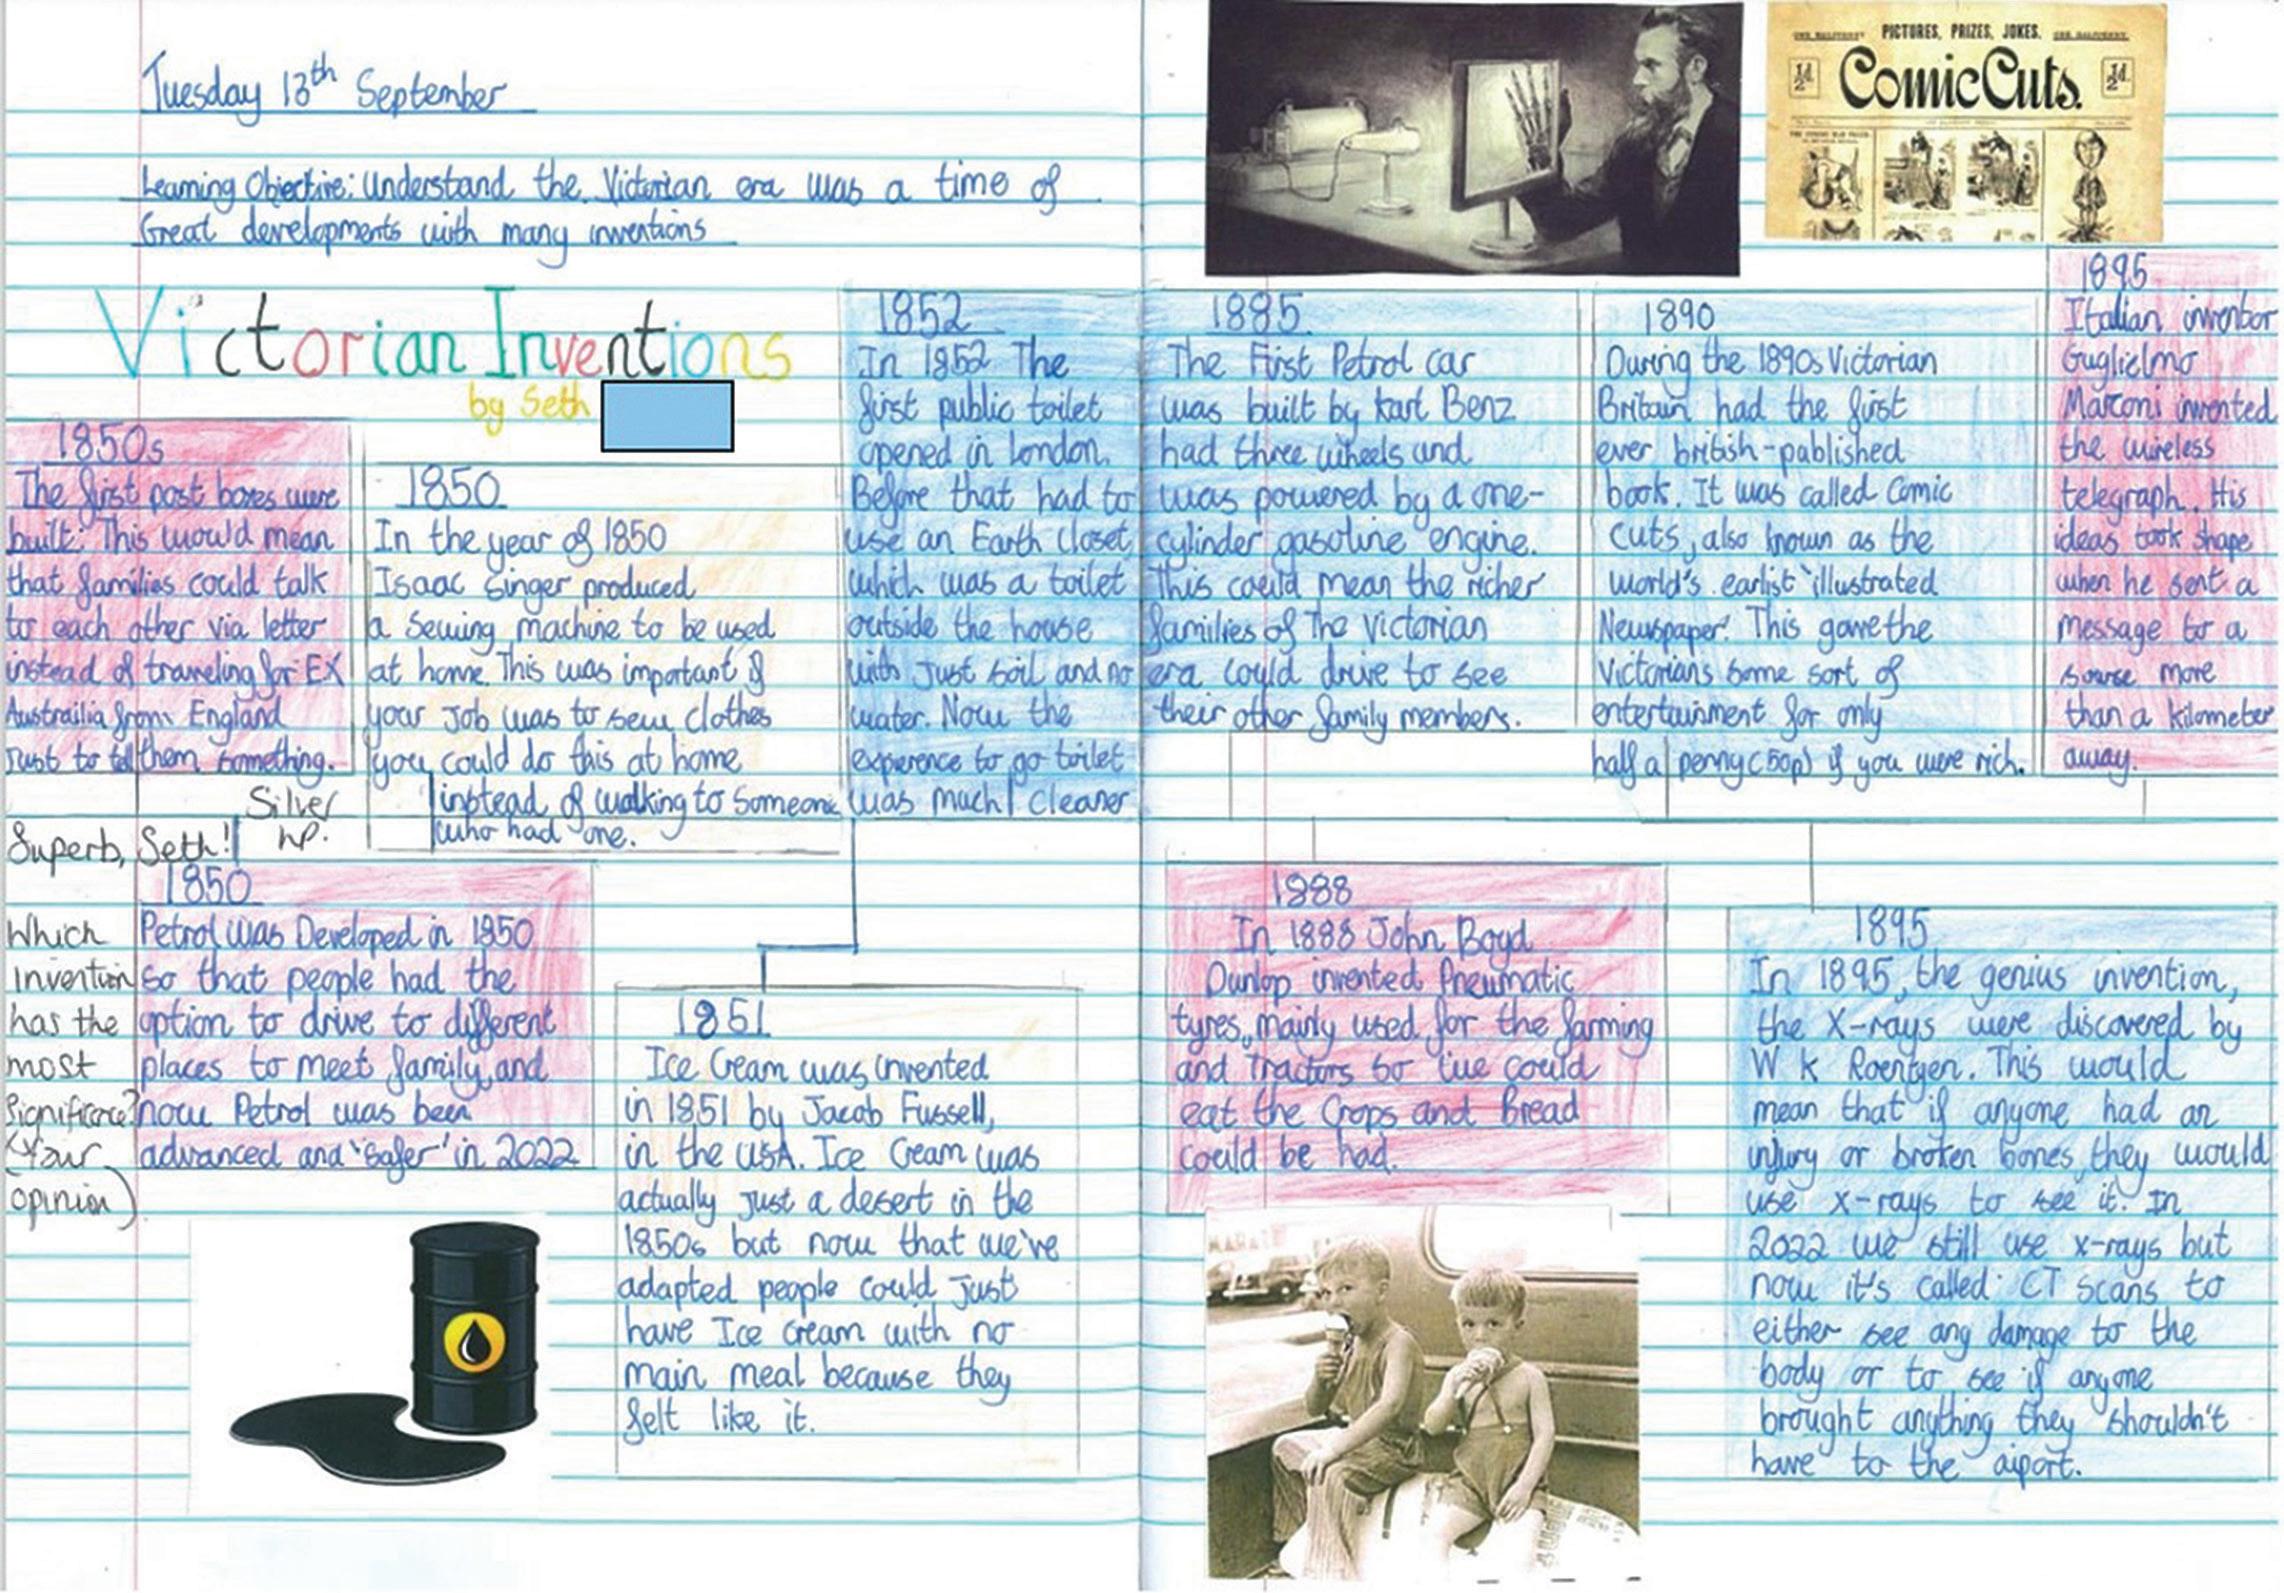 Tuesday 13th September
Learning Objective: Understand the Victorian era was a time of
Great developments with many inventions
Victorian Inventions
by Seth
1850s
The first post boxes were
built. This would mean
that families could talk
to each other via letter
instead of traveling for EX
Austrailia from England
Just to tell them something.
1850
In the year of 1850
Isaac Singer produced
a Sewing machine to be used
at home. This was important if
your Job was to sew clothes
you could do this at home
instead of walking to someone
who had one.
1852
In 1852 The
first public toilet
opened in London.
Before that had to
use an Earth closet
which was a toilet
outside the house
with Just soil and no
water. Now the
experence to go toilet
was much cleaner
Superb, Seth!
Silver
HP.
Which
invention
has the
most
Significance?
(Your
opinion)
1850
Petrol was Developed in 1850
so that people had the
option to drive to different
places to meet family, and
now Petrol was been
advanced and 'safer' in 2022
1851
Ice Cream was invented
in 1851 by Jacob Fussell,
in the USA. Ice Cream was
actually just a desert in the
1850s but now that we've
adapted people could Just
have Ice cream with no
main meal because they
felt like it.
PICTURES, PRIZES, JOKES.
ONE HALFPENNY
ONE HALFPENNY
½d.
Comic Cuts.
½d.
1885
The First Petrol car
was built by karl Benz
had three wheels and
was powered by a one-
cylinder gasoline engine.
This could mean the richer
families of The Victorian
era could drive to see
their other family members.
1890
During the 1890s Victorian
Britain had the first
ever british-published
book. It was called Comic
cuts, also known as the
world's earlist 'illustrated
Newspaper'. This gave the
Victorians some sort of
entertainment for only
half a penny (50p) if you were rich.
1895
Italian inventor
Guglielmo
Marconi invented
the wireless
telegraph. His
ideas took shape
when he sent a
message to a
sourse more
than a kilometer
away.
1888
In 1888 John Boyd
Dunlop invented Pneumatic
tyres, mainly used for the farming
and Tractors so we could
eat the Crops and Bread
could be had.
1895
In 1895, the genius invention,
the X-rays were discovered by
W K Roentgen. This would
mean that if anyone had an
injury or broken bones, they would
use x-rays to see it. In
2022 we still use x-rays but
now it's called CT scans to
either see any damage to the
body or to see if anyone
brought anything they shouldn't
have to the aiport.